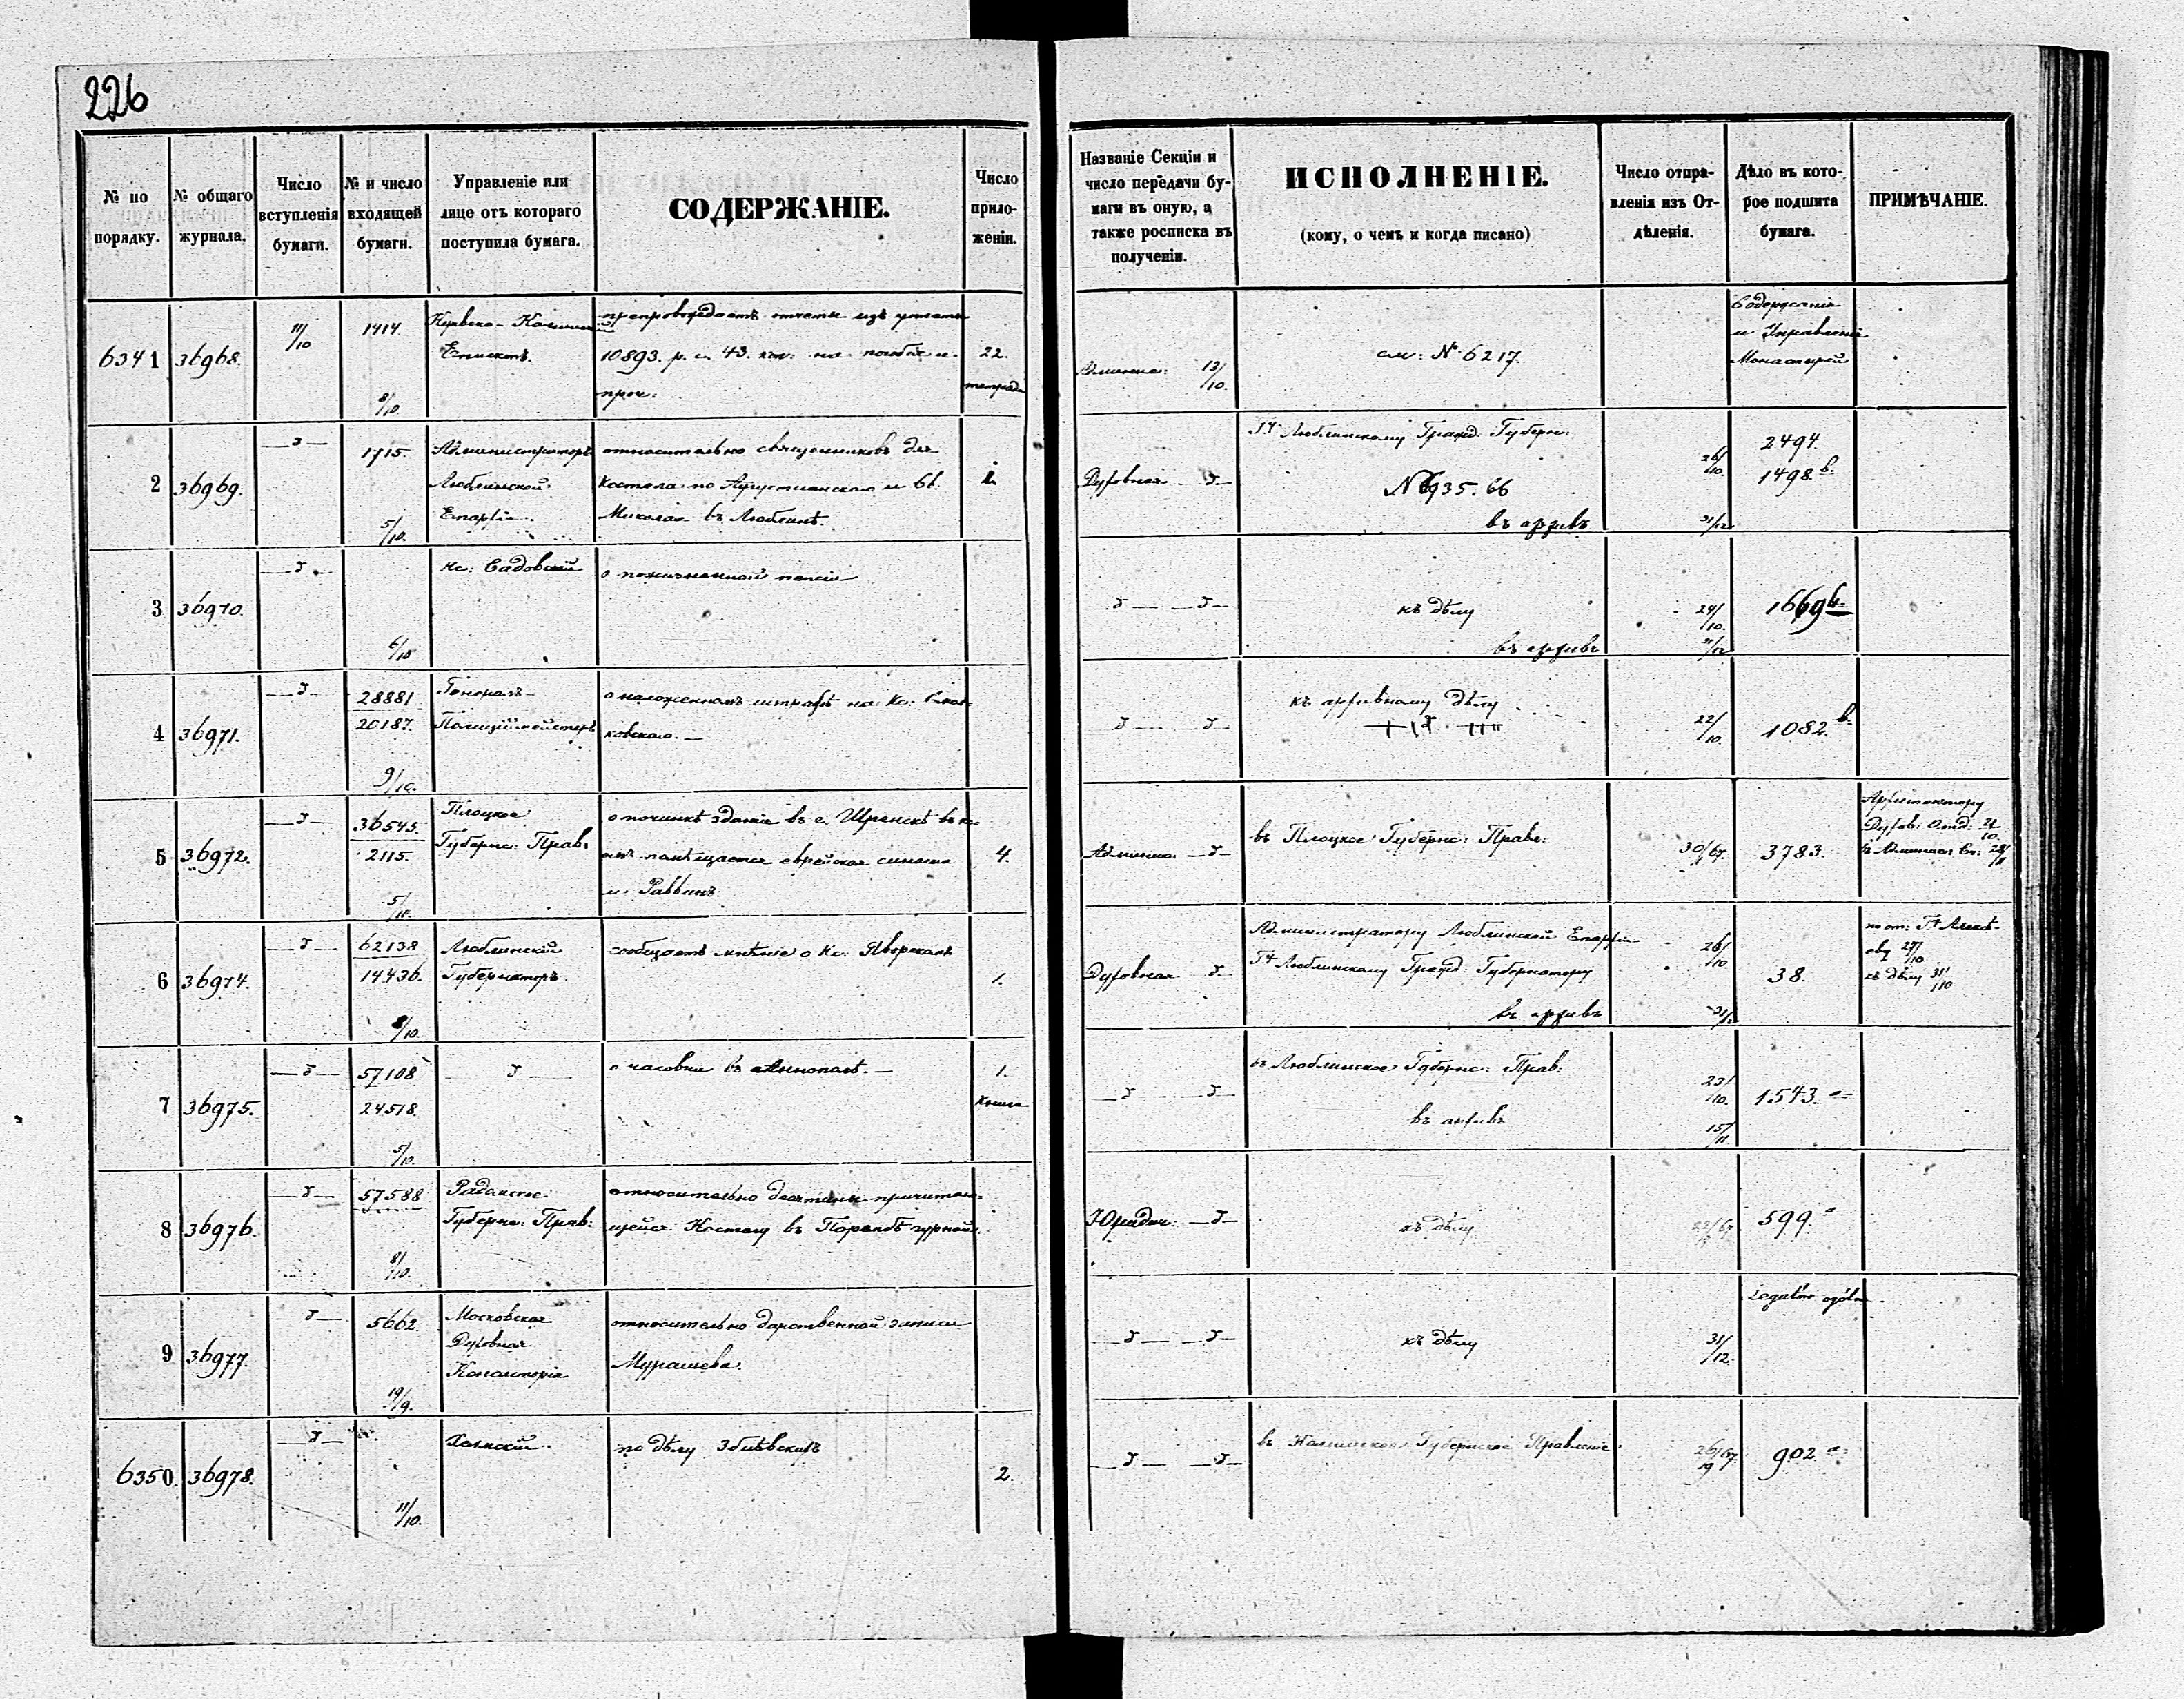 226
№ по порядку.
№ общаго журнала.
Число вступленія бумаги.
№ и число входящей бумаги.
Управленіе или лице отъ котораго поступила бумага.
СОДЕРЖАНІЕ.
Число приложеніи.
Названіе Секціи и число передачи бумаги въ оную, а также росписка въ полученіи.
ИСПОЛНЕНІЕ.
(кому, о чемъ и когда писано)
Число отправленія изъ Отдѣленія.
Дѣло въ которое подшита бумага.
ПРИМѢЧАНІЕ.
6341 36968. 11/10 1414. 8/10.
Епископъ.
препровождаетъ отчеты изъ уплаты
10893. р. с. 43. коп. на пособія и
проч.
22. тетради
13/10.
см: № 6217.
Содержаніе
и Управленіе
Монастырей
2 36969. 1715. 5/10.
Администраторъ
Люблинской
Епархіи.
относительно священниковъ для
Костела по Августіанскаго и Св.
Миколая въ Люблинѣ.
Духовная
Люблинскому Гражд: Губерн:
26/10.
№ 6935. 66
въ архивъ 31/12
2494.
1498 b.
3 36970. 6/10
Кс: Садовскій
о пожизненной пенсіи
къ дѣлу 24/10.
въ архивъ 31/12
1669 b.
4 36971. 28881 20187. 9/10.
Генералъ-
Полиціймейстеръ
о наложенномъ штрафѣ на Кс:
ковскаго. —
къ архивному дѣлу
22/10.
1082 b.
5 36972. 36545. 2115. 5/10.
Плоцкое
Губернс: Прав:
о починкѣ зданія въ г. Шренскѣ въ ко-
емъ помѣщается еврейская
и Раввинъ.
4.
въ Плоцкое Губернс: Правл:
3783.
Архитектору
Духов: Отд: 21/10.
6 36974. 62138 14436. 8/10.
Люблинскій
Губернаторъ.
сообщаетъ мнѣніе о Кс: Яворскомъ
1.
Духовная
Администратору Люблинской Епархіи
Люблинскому Гражд: Губернатору
26/10.
въ архивъ 31/12
38.
27/10
къ дѣлу 31/10
7 36975. 57108 24518. 5/10.
о часовни въ Аннополѣ. —
1. Книга
въ Люблинское Губернс: Прав:
23/10.
въ архивъ
15/11
1543. a
8 36976. 57588 8/10.
Радомское
Губернс: Прав:
относительно десятины причитаю-
щейся Костелу въ Порембѣ гурной.
Юридич:
къ дѣлу
599. a
9 36977. 5662. 19/9.
Московская
Духовная
Консисторія
относительно дарственной записи
Мурашева.
къ дѣлу
31/12.
Legatów ogóln
6350. 36978. 11/10.
Холмскій
по дѣлу Збіѣвскихъ
2.
въ Калишское Губернское Правленіе
902 a